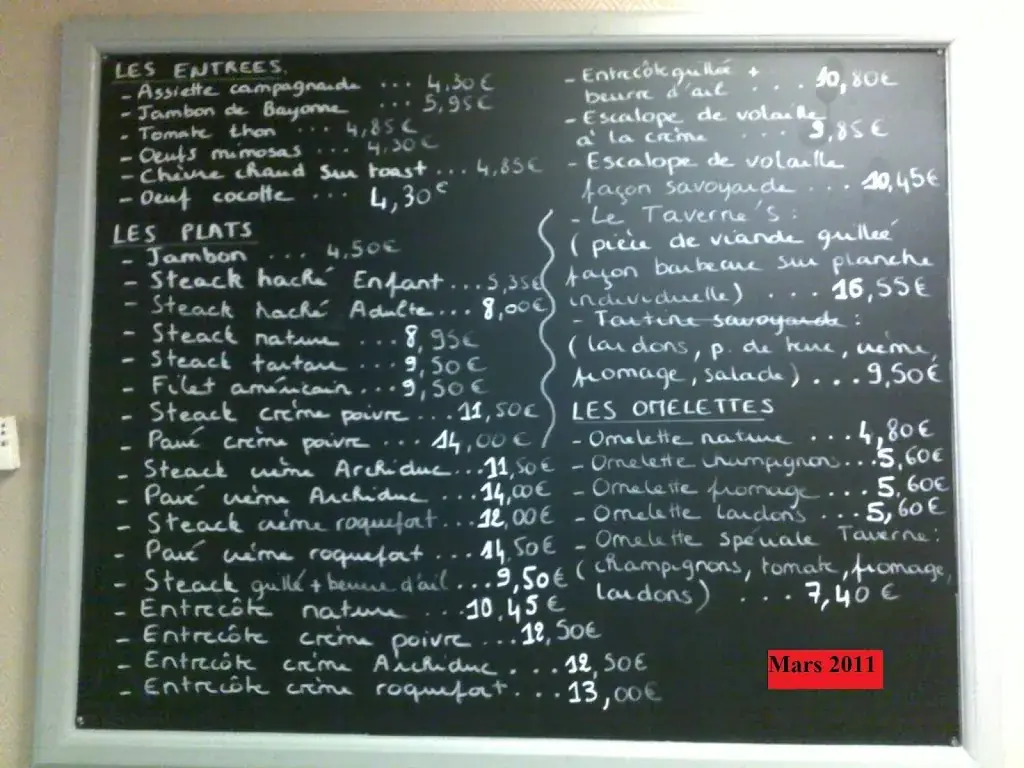 LES ENTREES
- Assiette campagnarde ... 4,30€
- Jambon de Bayonne ... 5,95€
- Tomate thon ... 4,85€
- Oeufs mimosas ... 4,30€
- Chèvre chaud sur toast ... 4,85€
- Oeuf cocotte ... 4,30€
LES PLATS
- Jambon ... 4,50€
- Steack haché Enfant ... 5,35€
- Steack haché Adulte ... 8,00€
- Steack nature ... 8,95€
- Steack tartare ... 9,50€
- Filet américain ... 9,50€
- Steack crème poivre ... 11,50€
- Pavé crème poivre ... 14,00€
- Steack crème Archiduc ... 11,50€
- Pavé crème Archiduc ... 14,00€
- Steack crème roquefort ... 12,00€
- Pavé crème roquefort ... 14,50€
- Steack grillé + beurre d'ail ... 9,50€
- Entrecôte nature ... 10,45€
- Entrecôte crème poivre ... 12,50€
- Entrecôte crème Archiduc ... 12,50€
- Entrecôte crème roquefort ... 13,00€
- Entrecôte grillée +
beurre d'ail ... 10,80€
- Escalope de volaille
à la crème ... 9,85€
- Escalope de volaille
façon savoyarde ... 10,45€
- Le Taverne's :
( pièce de viande grillée
façon barbecue sur planche
individuelle) ... 16,55€
- Tartine savoyarde :
( lardons, p. de terre, crème,
fromage, salade) ... 9,50€
LES OMELETTES
- Omelette nature ... 4,80€
- Omelette champignons ... 5,60€
- Omelette fromage ... 5,60€
- Omelette lardons ... 5,60€
- Omelette spéciale Taverne :
( champignons, tomate, fromage,
lardons) .... 7,40€
Mars 2011